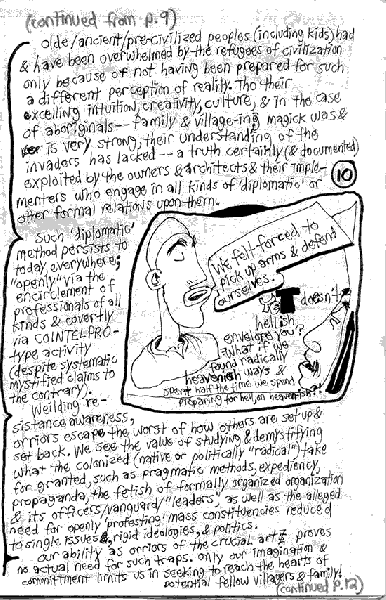 (continued from p.9)
Olde/ancient/pre-civilized peoples (including kids) had
& have been overwhelmed by the refugees of civilization
only because of not having been prepared for such
a different perception of reality. Tho their
excelling intuition, creativity, culture, & in the case
of aboriginals -- family & village-ing magick was &
is very strong, their understanding of the
invaders has lacked -- a truth certainly (& documented)
exploited by the owners & architects & their imple-
menters who engage in all kinds of 'diplomatic' or
other formal relations upon them.
10
Such 'diplomatic'
method persists to
today everywhere;
"openly" via the
encirclement of
professionals of all
kinds & covertly
via COINTELPRO-
type activity
(despite systematic
mystified claims to
the contrary).
We felt forced to
pick up arms & defend
ourselves.
IT doesn't
hellish
envelope you?
What if we
found radically
heavenish ways &
spent half the time we spend
preparing for hell, on heavenish?!
Weilding re-
sistance awareness,
orriors escape the worst of how others are set up &
set back. We see the value of studying & demystifying
what the colonized (native or politically "radical") take
for granted, such as pragmatic methods, expediency,
propaganda, the fetish of formally organized organization
& its officers/vanguard/"leaders" as well as the alleged
need for openly 'protesting' mass constituencies reduced
to single issues &, rigid ideologies, & politics.
Our ability as orriors of the crucial art proves
no actual need for such traps. Only our imagination &
commitment limits us in seeking to reach the hearts of
potential fellow villagers & family!
(continued p.12)